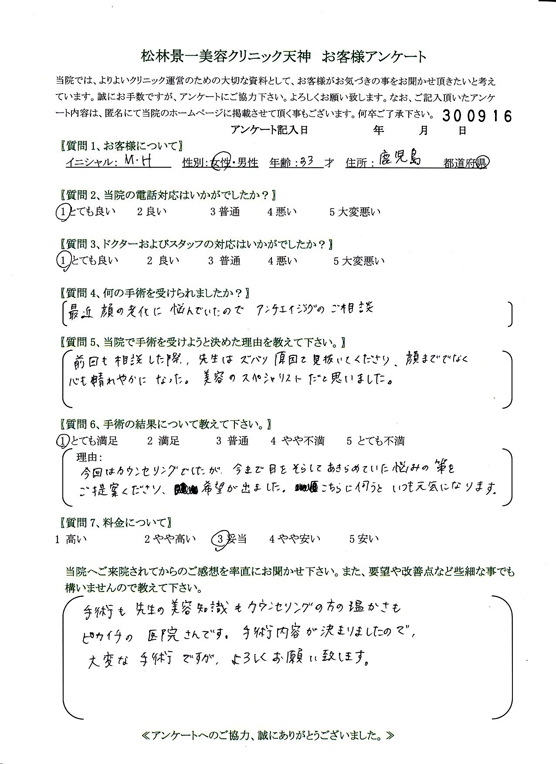 松林景一美容クリニック天神 お客様アンケート
当院では、よりよいクリニック運営のための大切な資料として、お客様がお気づきの事をお聞かせ頂きたいと考え
ています。誠にお手数ですが、アンケートにご協力下さい。よろしくお願い致します。なお、ご記入頂いたアンケ
ート内容は、匿名にて当院のホームページに掲載させて頂く事もございます。何卒ご了承下さい。 300916
アンケート記入日 年 月 日
〖質問 1、お客様について〗
イニシャル: M・H 性別:女性・男性 年齢:33 才 住所: 鹿児島 都道府県
〖質問 2、当院の電話対応はいかがでしたか?〗
1とても良い 2 良い 3 普通 4 悪い 5 大変悪い
〖質問 3、ドクターおよびスタッフの対応はいかがでしたか?〗
1とても良い 2 良い 3 普通 4 悪い 5 大変悪い
〖質問 4、何の手術を受けられましたか?〗
最近 顔の老化に 悩んでいたので アンチエイジングのご相談
〖質問 5、当院で手術を受けようと決めた理由を教えて下さい。〗
前回も相談した際、先生はズバリ原因を見抜いてくださり、顔まででなく
心も晴れやかになった。美容のスペシャリストだと思いました。
〖質問 6、手術の結果について教えて下さい。〗
1とても満足 2 満足 3 普通 4 やや不満 5 とても不満
理由:
今回はカウンセリングでしたが、今まで目をそらしてあきらめていた悩みの策を
ご提案くださり、希望が出ました。こちらに伺うといつも元気になります。
〖質問 7、料金について〗
1 高い 2 やや高い 3妥当 4 やや安い 5 安い
当院へご来院されてからのご感想を率直にお聞かせ下さい。また、要望や改善点など些細な事でも
構いませんので教えて下さい。
手術も先生の美容知識もカウンセリングの方の温かさも
ピカイチの医院さんです。手術内容が決まりましたので、
大変な手術ですが、よろしくお願い致します。
≪アンケートへのご協力、誠にありがとうございました。≫